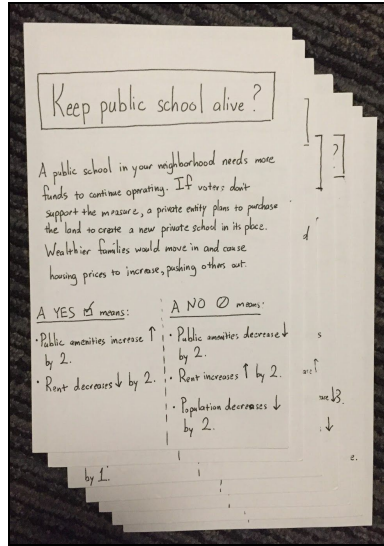 Keep public school alive?
A public school in your neighborhood needs more
funds to continue operating. If voters don't
support the measure, a private entity plans to purchase
the land to create a new private school in its place.
Wealthier families would move in and cause
housing prices to increase, pushing others out.
A YES ☑ means:
• Public amenities increase ↑
by 2.
• Rent decreases ↓ by 2.
A NO ∅ means:
• Public amenities decrease ↓
by 2.
• Rent increases ↑ by 2.
• Population decreases ↓
by 2.
?
d
s
↑
↓3.
↓
e.
by 1.